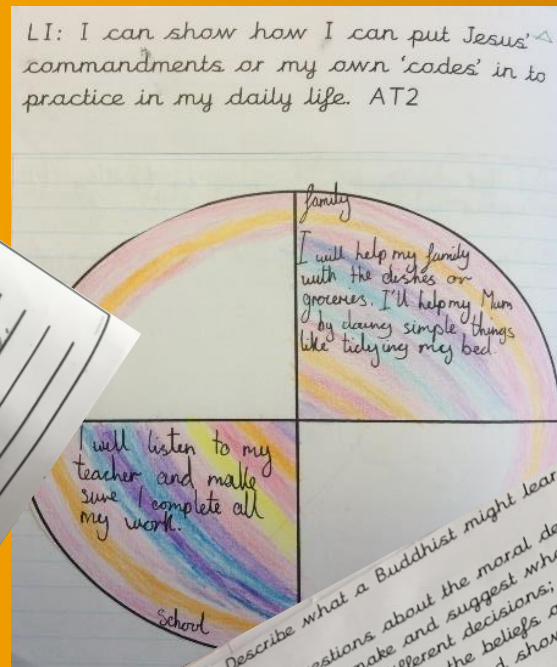 LI: I can show how I can put Jesus'
commandments or my own 'codes' in to
practice in my daily life. AT2
family
I will help my family
with the dishes or
groceries. I'll help my Mum
by doing simple things
like tidying my bed.
I will listen to my
teacher and make
sure I complete all
my work.
School
Describe what a Buddhist might lear
estions about the moral de
make and suggest wha
fferent decisions;
the beliefs a
d show